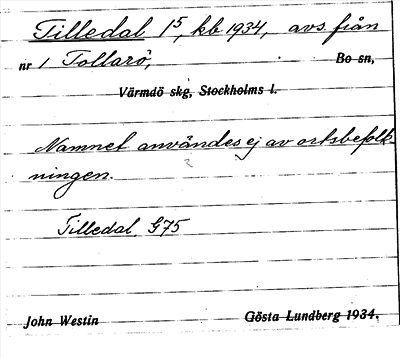 Tilledal 1⁵, kb 1934, avs. från
nr 1 Tollarö, Bo sn,
Värmdö skg, Stockholms l.
Namnet användes ej av ortsbefolk-
ningen.
Tilledal G75
John Westin Gösta Lundberg 1934.